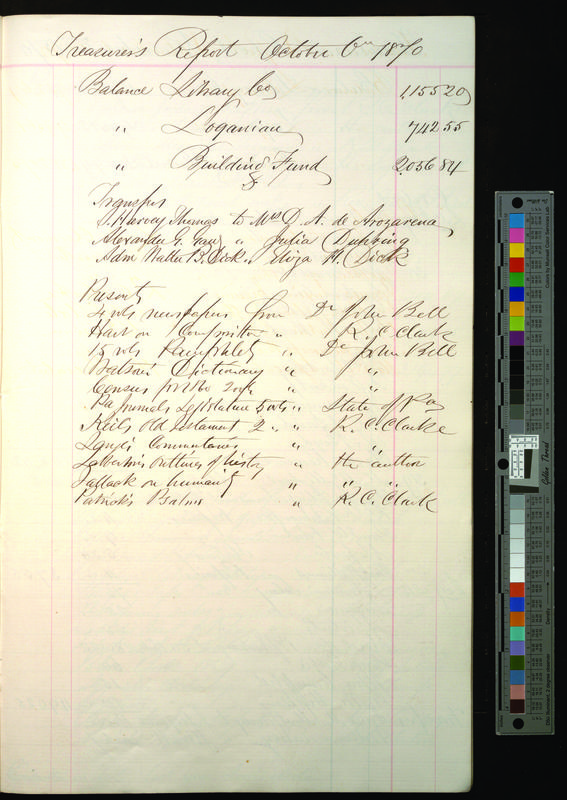 Treasurer's Report October 6th 1870
Balance Library Co 1,155 20
" Loganian 742 55
" Building Fund 2,056 84
Transfer
S. Harvey Thomas to Mrs D. A. de Arozarena
Alexander G. " Julia Dubbing
Adm Walter B. Dick " Eliza H. Dick
Presents
4 vols newspapers from Dr John Bell
Hart on Composition " R. C. Clark
15 vols Pamphlets " Dr John Bell
Watson's Dictionary " "
Census for 1860 2 vols " "
Pa Journals Legislature 5 vols " State of Pa
Keils Old Testament 2 " " R. C. Clarke
Lange's Commentaries " "
Outlines of history " the author
on humanity " " "
Patrick's Psalms " R. C. Clark